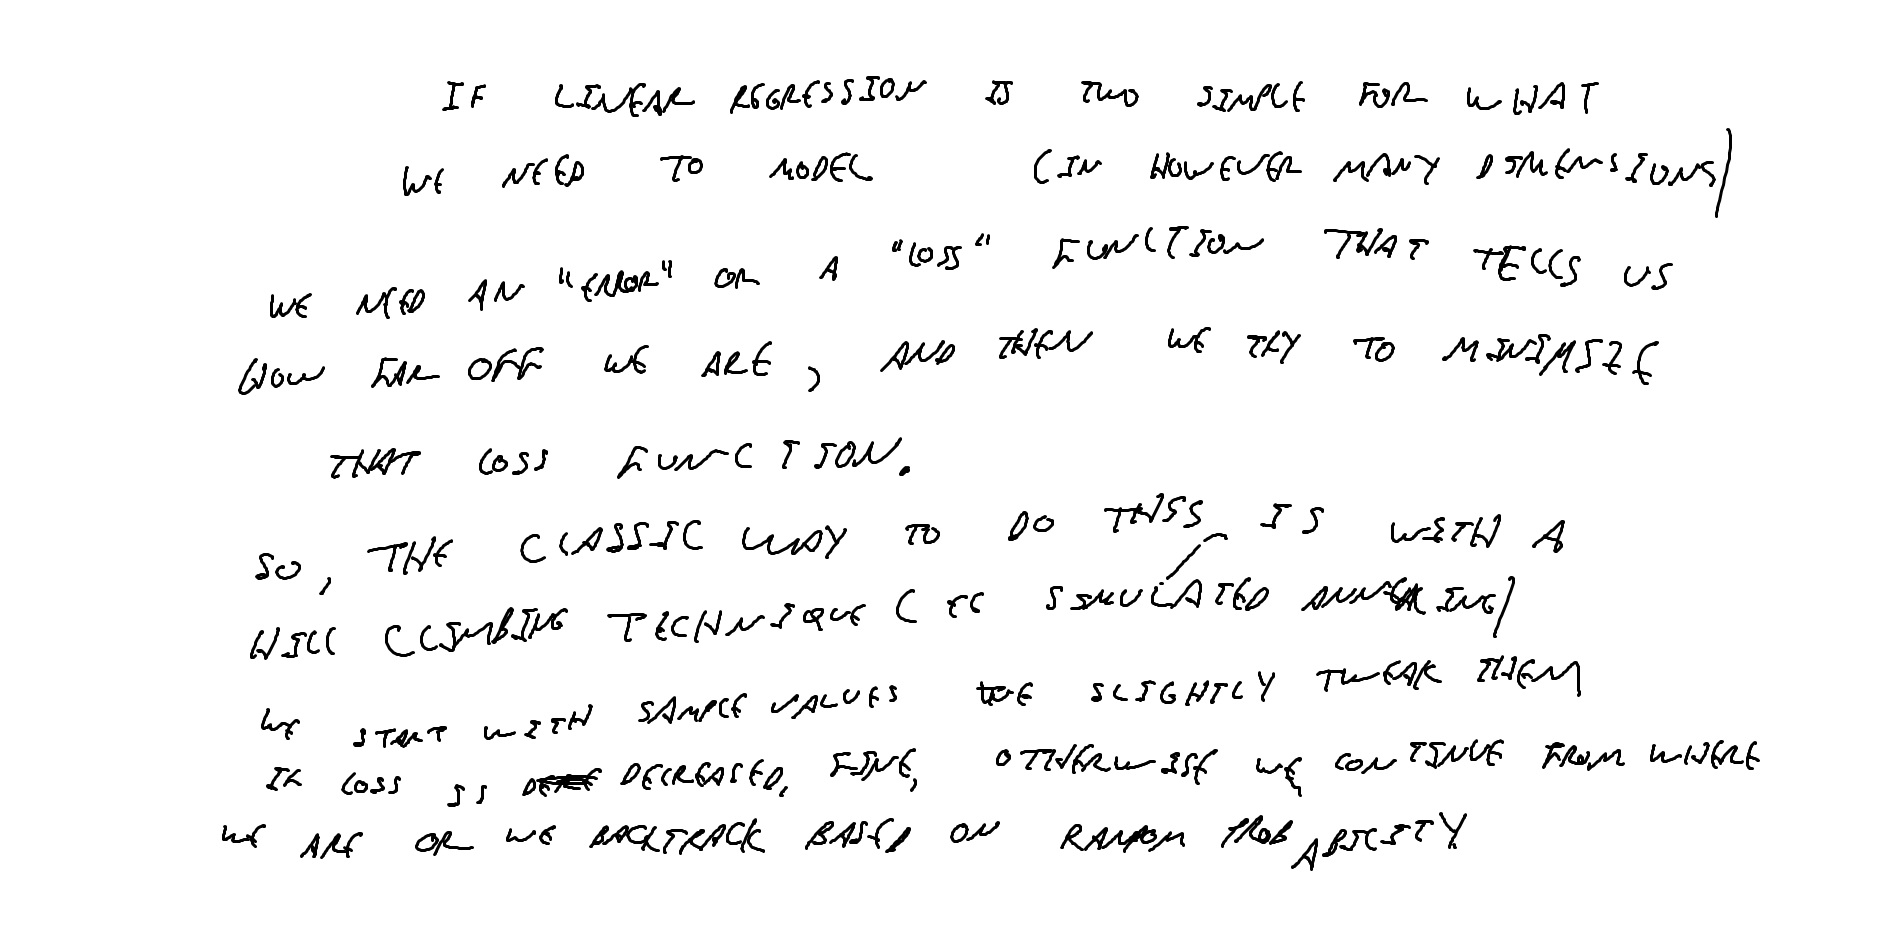 IF LINEAR REGRESSION IS TWO SIMPLE FOR WHAT
WE NEED TO MODEL (IN HOWEVER MANY DIMENSIONS)
WE NEED AN "ERROR" OR A "LOSS" FUNCTION THAT TELLS US
HOW FAR OFF WE ARE, AND THEN WE TRY TO MINIMIZE
THAT LOSS FUNCTION.
SO, THE CLASSIC WAY TO DO THIS IS WITH A
HILL CLIMBING TECHNIQUE (EG SIMULATED ANNEALING)
WE START WITH SAMPLE VALUES WE SLIGHTLY TWEAK THEM
IF LOSS IS DECREASED, FINE, OTHERWISE WE CONTINUE FROM WHERE
WE ARE OR WE BACKTRACK BASED ON RANDOM PROBABILITY